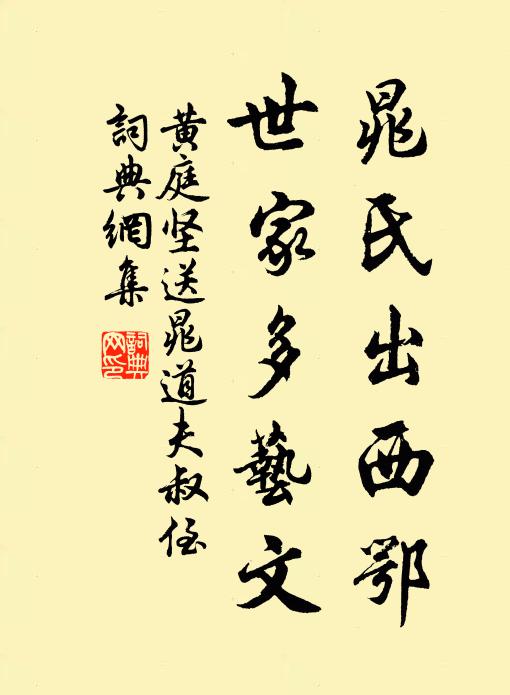 晁氏出西鄂
世家多藝文
黄庭坚送晁道夫叔侄
詞典網集
詞典網印